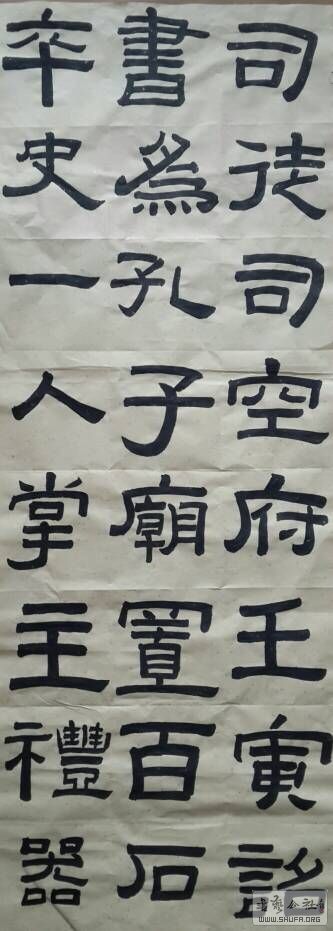 司徒司空府壬寅詔
書為孔子廟置百石
卒史一人掌主禮器
WWW.SHUFA.ORG